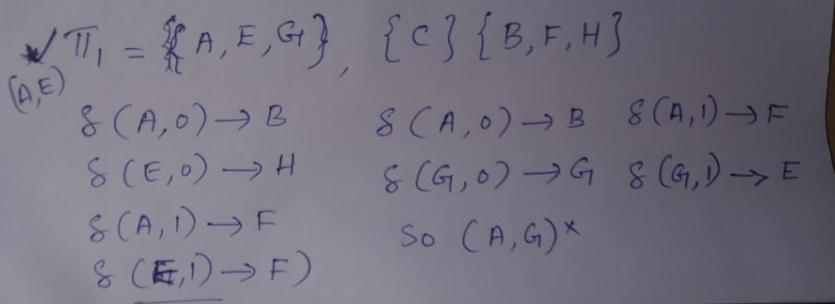 ✓ Π₁ = {A, E, G}, {C} {B, F, H}
(A,E)
δ(A,0) → B
δ(E,0) → H
δ(A,1) → F
δ(E,1) → F)
δ(A,0) → B δ(A,1) → F
δ(G,0) → G δ(G,1) → E
So (A,G)ˣ